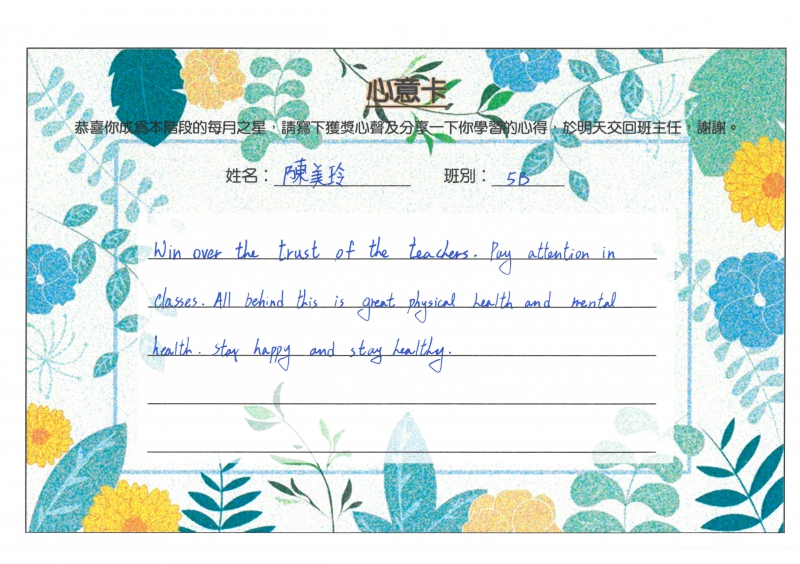 心意卡
恭喜你成為本階段的每月之星，請寫下獲獎心聲及分享一下你學習的心得，於明天交回班主任，謝謝。
姓名：陳美玲 班別：5B
Win over the trust of the teachers. Pay attention in
classes. All behind this is great physical health and mental
health. Stay happy and stay healthy.